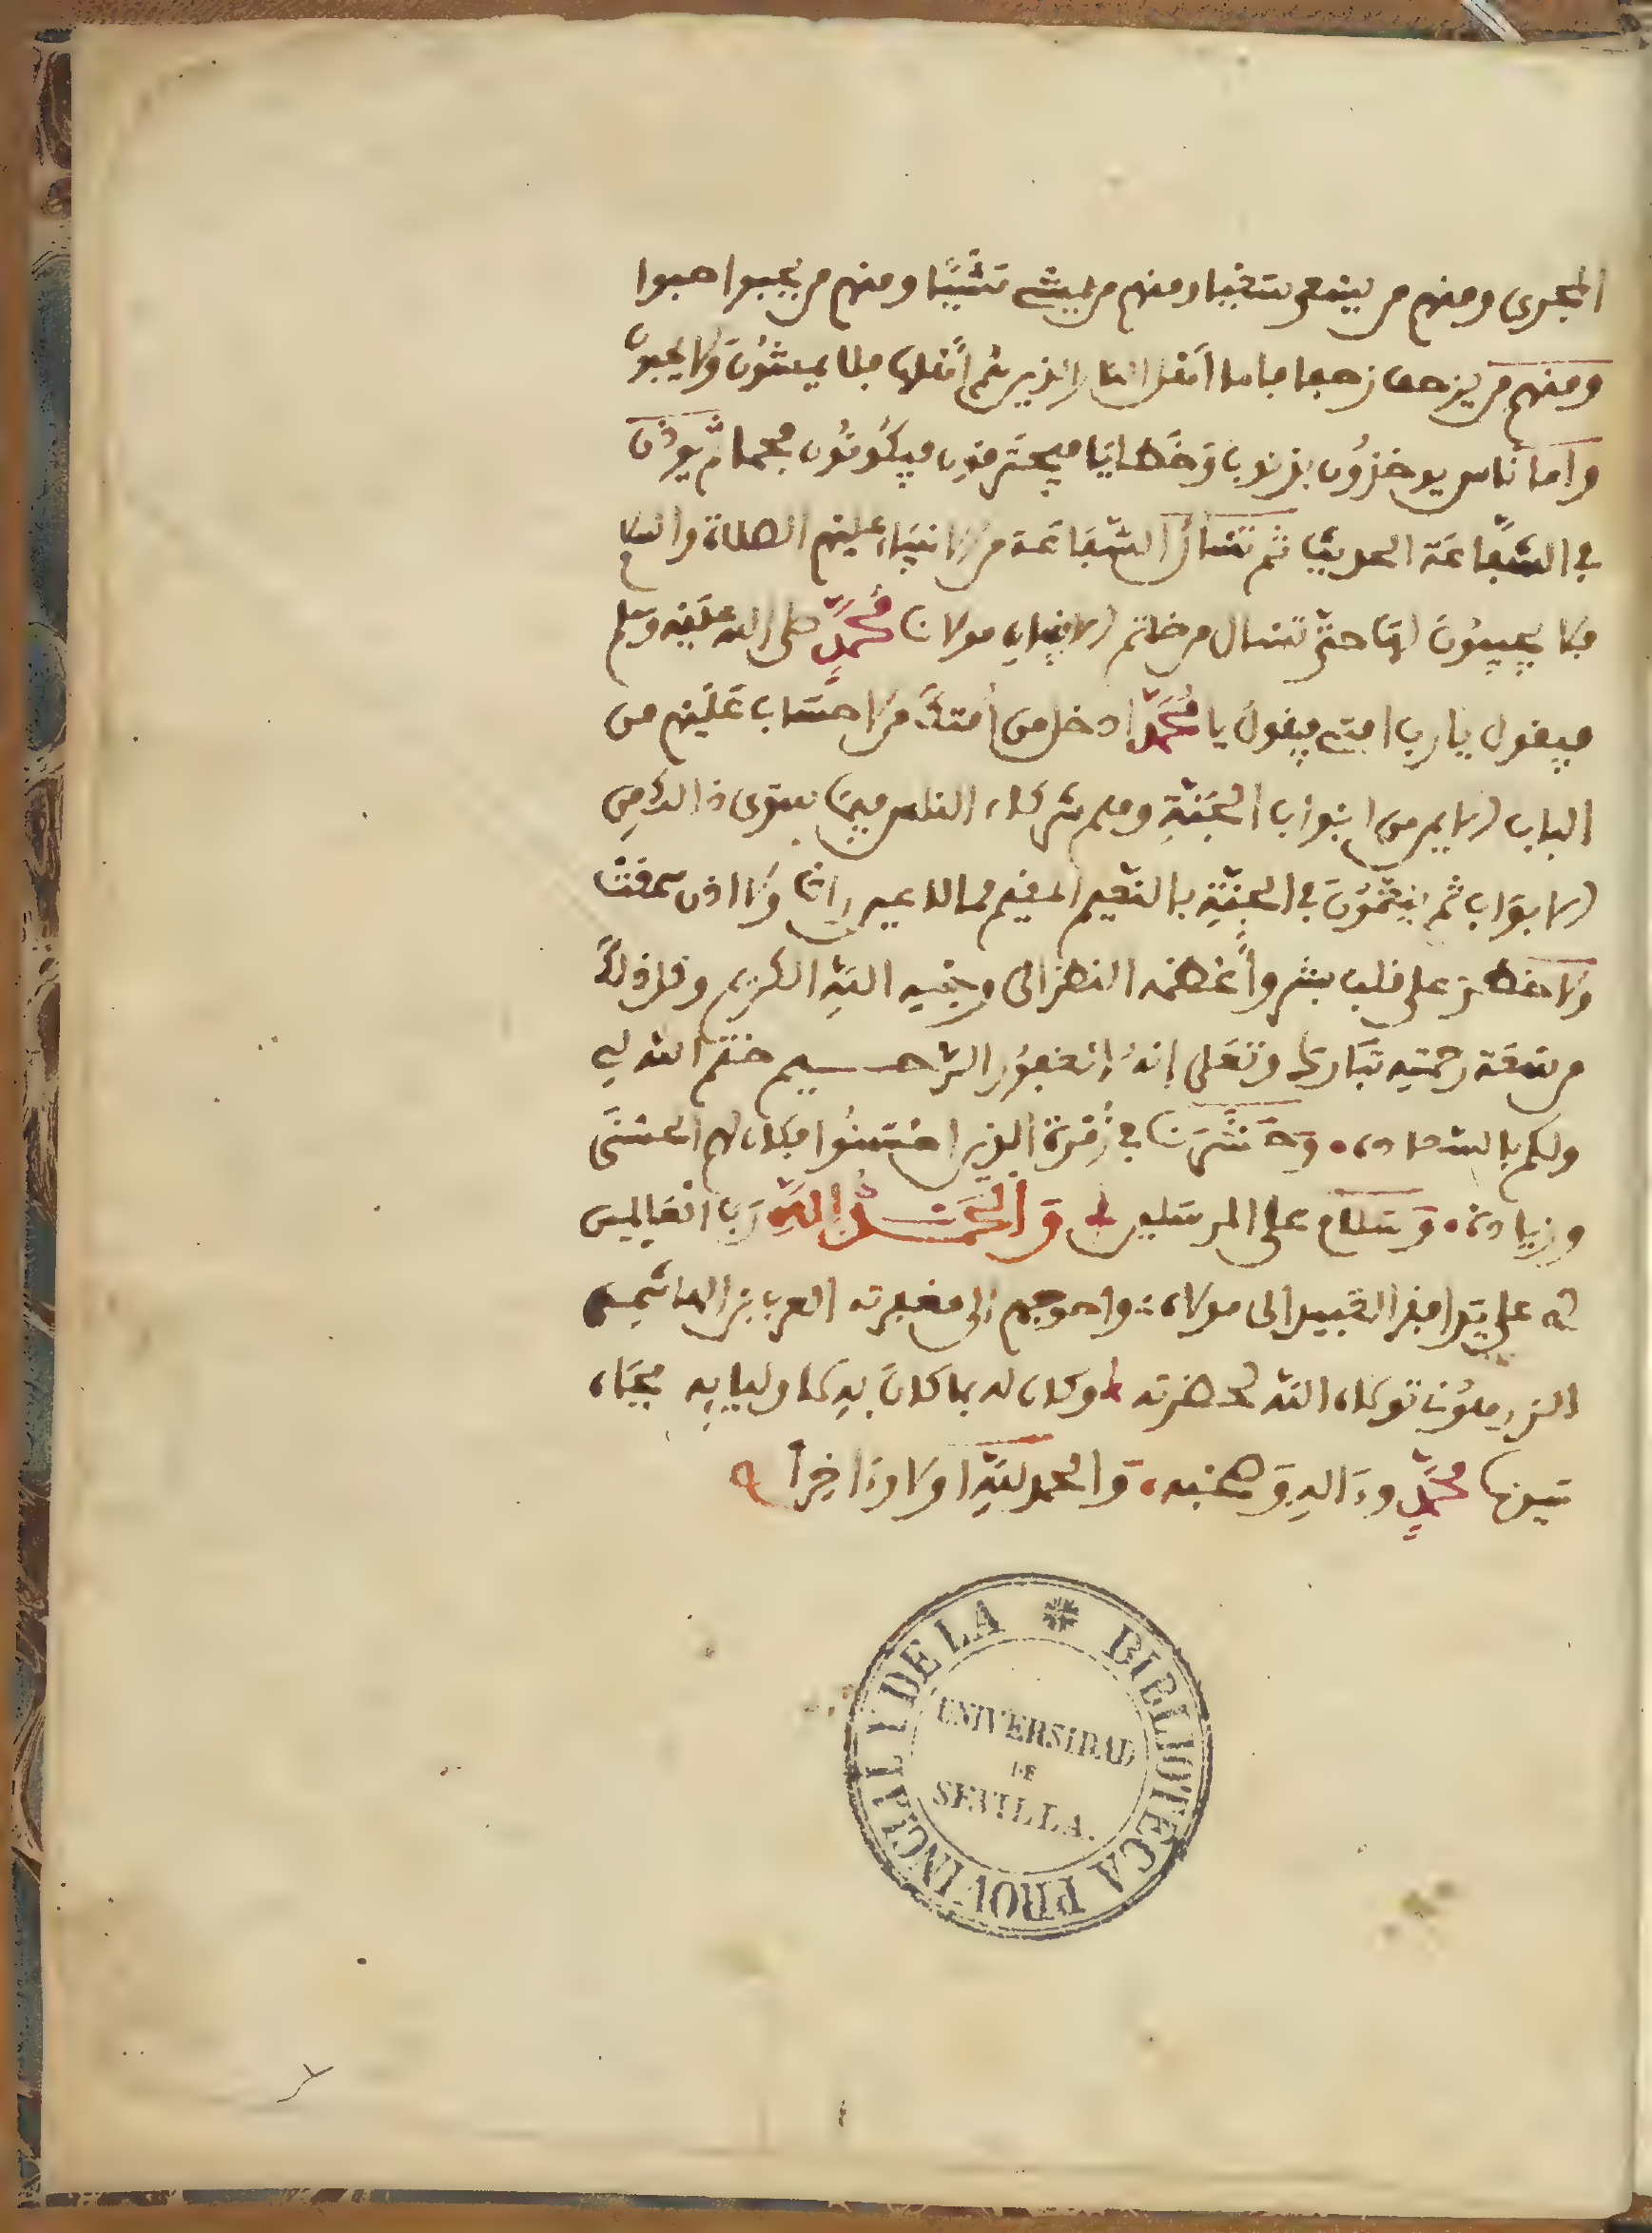 المجرى ومنهم من يسعى سعيا ومنهم من يمشى مشيًا ومنهم من يحبوا حبوا
ومنهم من يزحف زحفا فاما اهل النار الذين هم أهلها فلا يمشُون ولا يحبون
واما ناس يوخذُون بذنوب وَخَطايَا فيحترقون فيكُونُون فحما ثم يوذن
في الشَّفَاعَة الحديث ثم تسأل الشفاعَة من الانبياء عليهم الصلاة والسلام
فلا يجيبُون لها حتى تسال من خاتم الانبياء مولانا مُحَمَّدٍ صلى الله عليه وسلم
فيقول يا رب امتي فيقول يا مُحَمَّد ادخل من أمتك من لا حسَاب عَلَيْهم من
الباب الايمن من ابْوَاب الجَنَّةِ وهم شركاء الناس فيما سوى ذالك من
الابوَاب ثم يَنْعَمُونَ في الجَنَّةِ بالنعيم المقيم مما لا عين رات وَلا اذن سمعَتْ
ولا خطر على قلب بشر وأعْظمه النظر الى وجهِه اللهِ الكريم وقل ذلك
من سَعَة رحمتِه تبَارك وتعَلى إنهُ الغفُور الرحــــيم ختم الله لي
ولكم بالسعادة وَحَشَرَنَا في زُمْرَة الذين احْسَنُوا فكان لهم الحسْنَى
وزيادة وَسَلام على المرسَلين وَالْحَمْـــدُ لِلَّهِ رَبِّ الْعَالمين
العبيد الى مولاه واحوجهم الى مغفرته العرب بن الهاشمي
الزرهُون تولاه الله لحضرته وكان له بما كان به لاوليايه بجَاه
سَيدنا مُحَمَّدٍ وءالهِ وَصَحْبه وَالحمد للهِ اولا وءاخِراً
BIBLIOTECA PROVINCIAL I DE LA
UNIVERSIDAD
DE
SEVILLA.